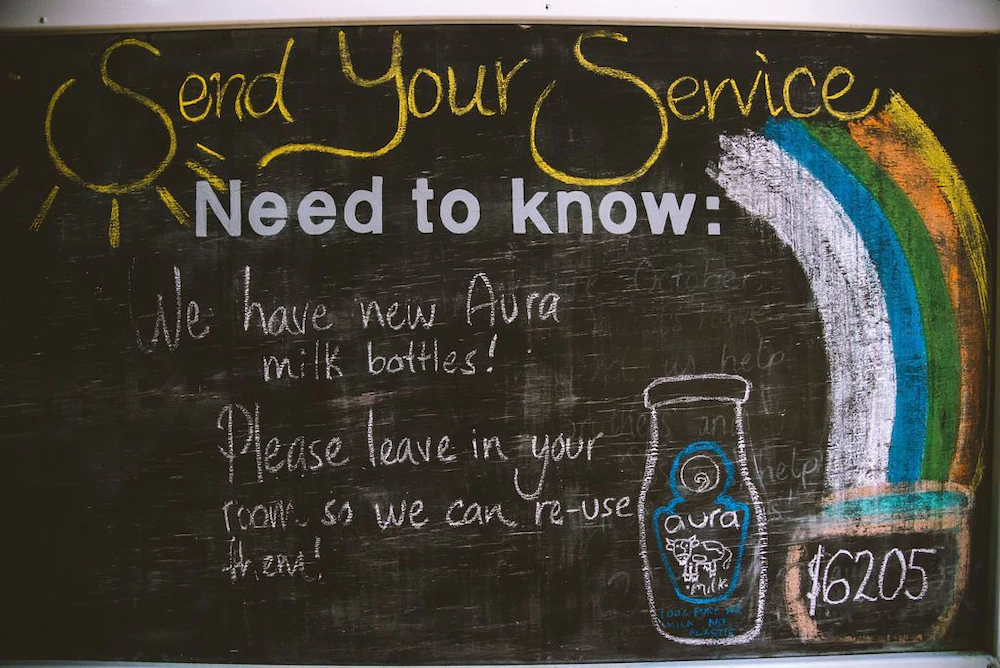 Send Your Service
Need to know:
We have new Aura
milk bottles!
Please leave in your
room so we can re-use
them!
October,
help
help
aura
milk
100% PURE
MILK NOT
PLASTIC
$6205